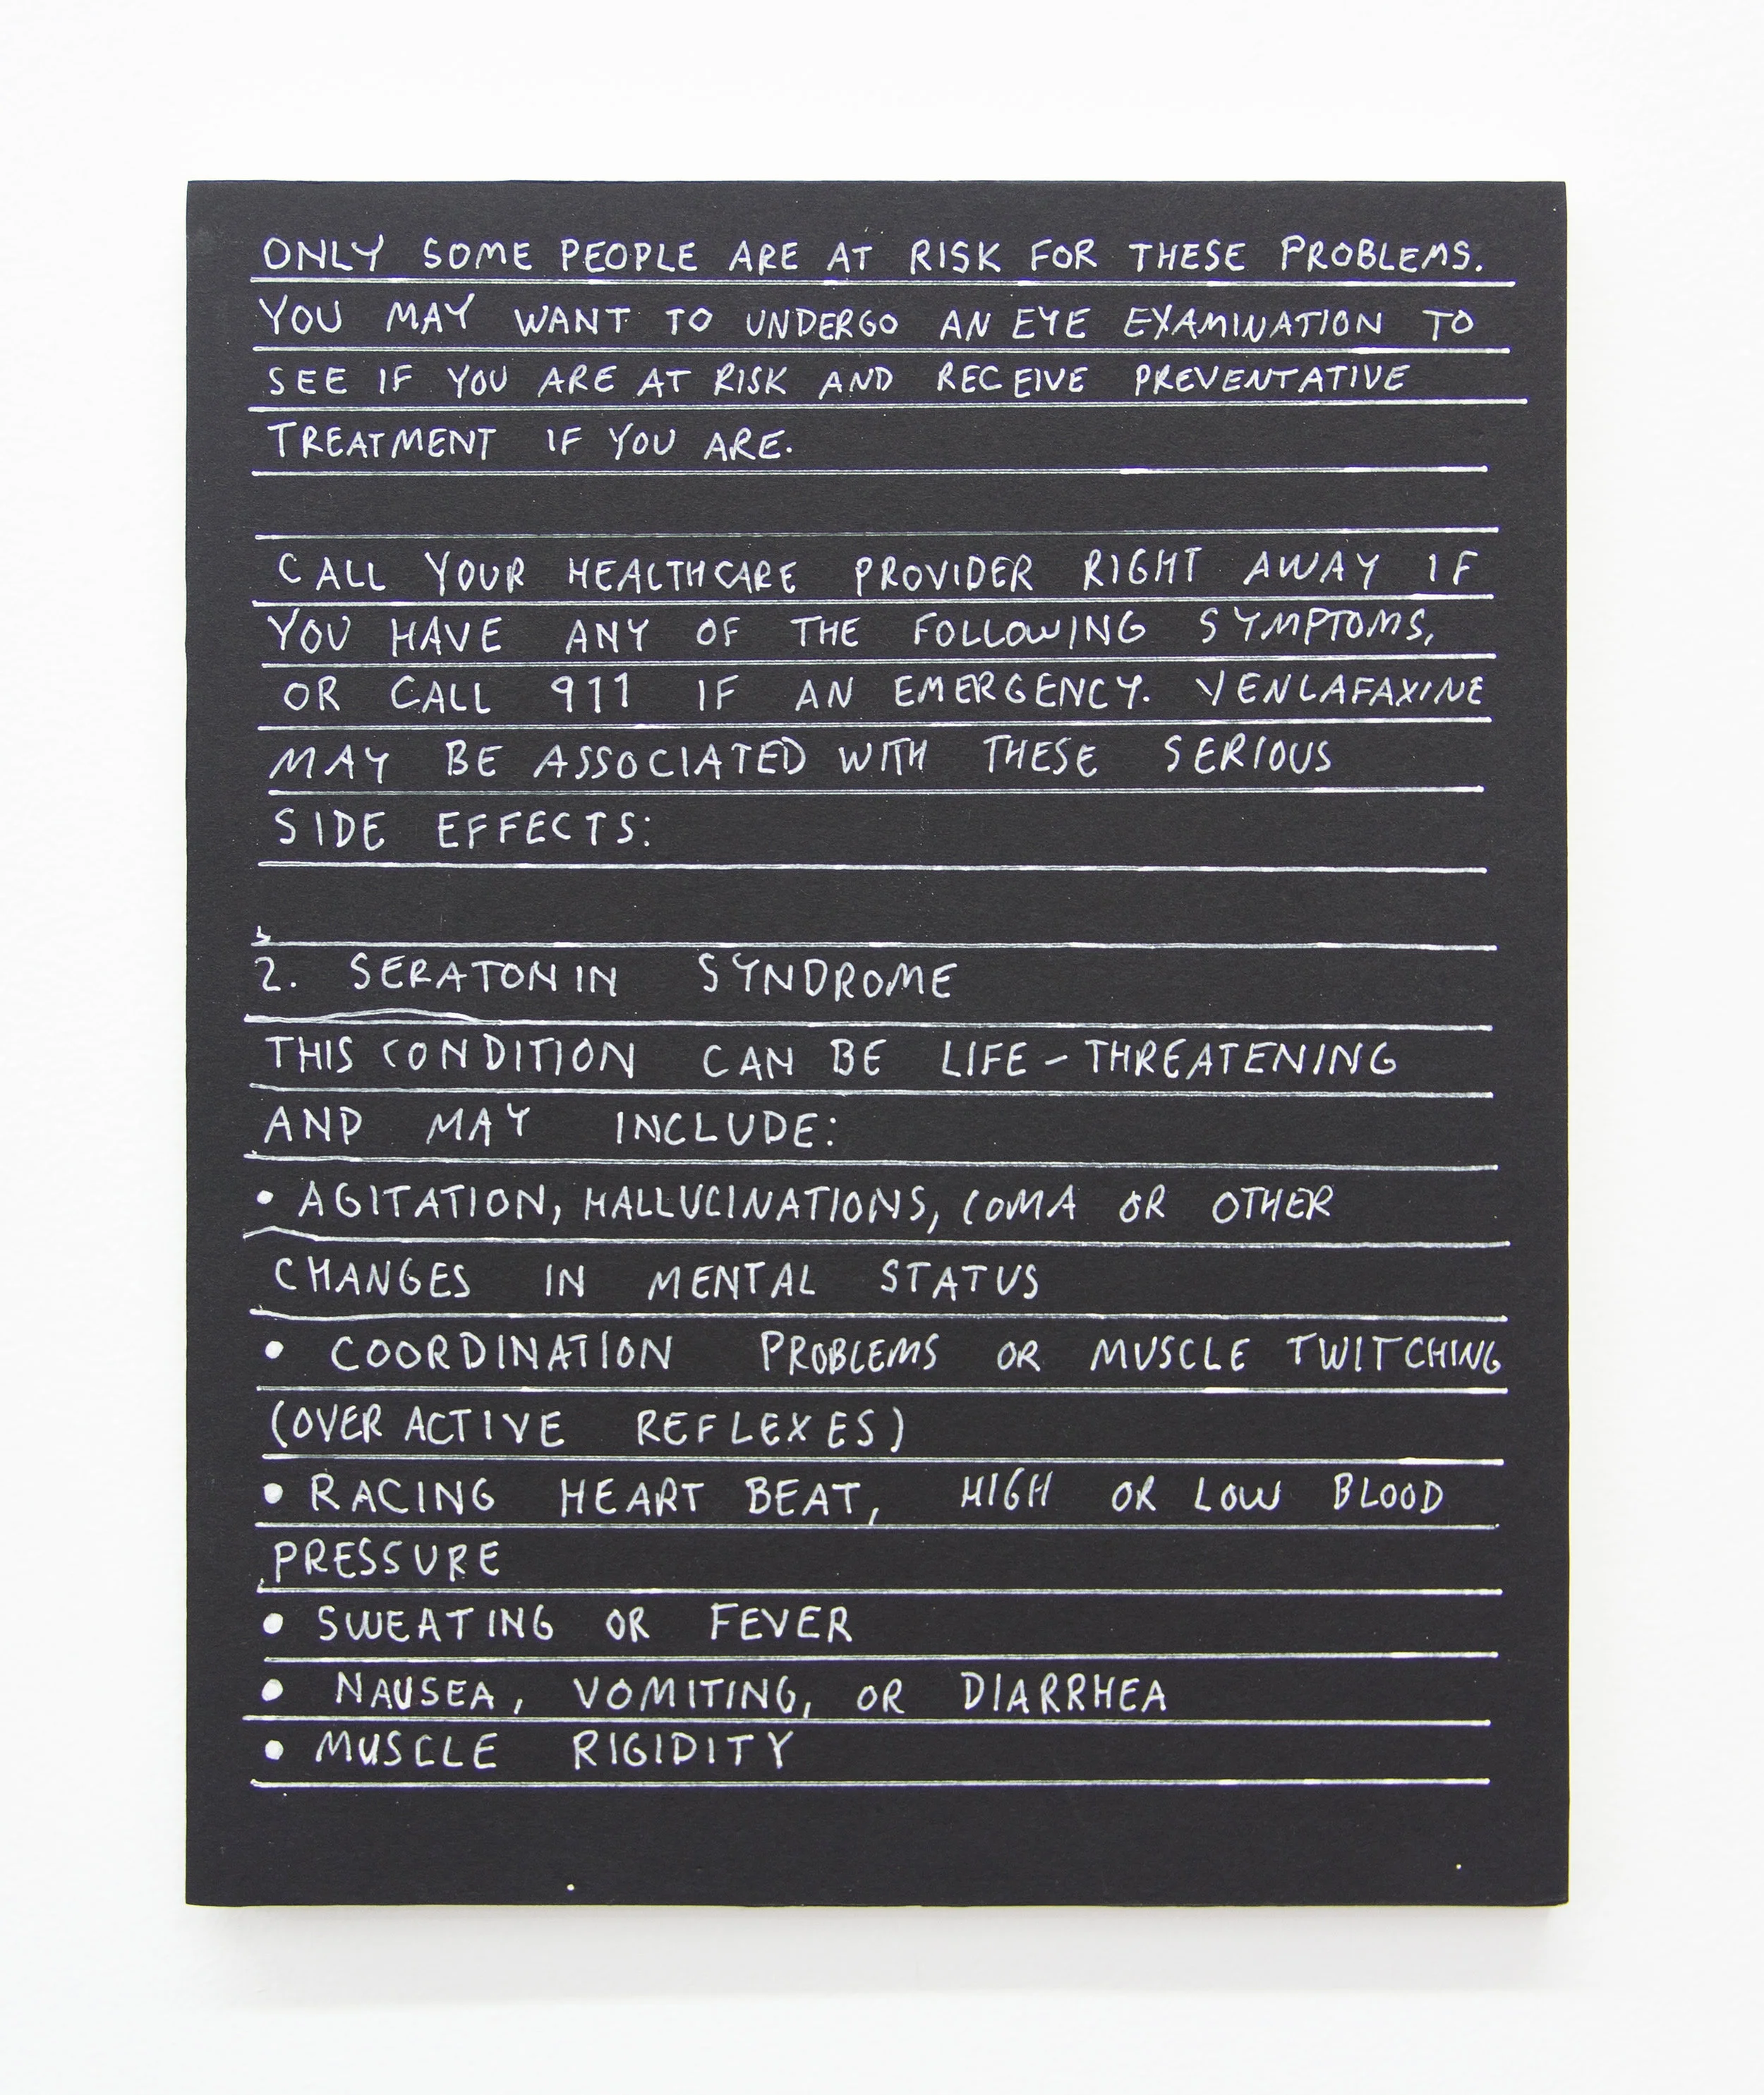 ONLY SOME PEOPLE ARE AT RISK FOR THESE PROBLEMS.
YOU MAY WANT TO UNDERGO AN EYE EXAMINATION TO
SEE IF YOU ARE AT RISK AND RECEIVE PREVENTATIVE
TREATMENT IF YOU ARE.
CALL YOUR HEALTHCARE PROVIDER RIGHT AWAY IF
YOU HAVE ANY OF THE FOLLOWING SYMPTOMS,
OR CALL 911 IF AN EMERGENCY. VENLAFAXINE
MAY BE ASSOCIATED WITH THESE SERIOUS
SIDE EFFECTS:
2. SERATONIN SYNDROME
THIS CONDITION CAN BE LIFE-THREATENING
AND MAY INCLUDE:
• AGITATION, HALLUCINATIONS, COMA OR OTHER
CHANGES IN MENTAL STATUS
• COORDINATION PROBLEMS OR MUSCLE TWITCHING
(OVER ACTIVE REFLEXES)
• RACING HEART BEAT, HIGH OR LOW BLOOD
PRESSURE
• SWEATING OR FEVER
• NAUSEA, VOMITING, OR DIARRHEA
• MUSCLE RIGIDITY